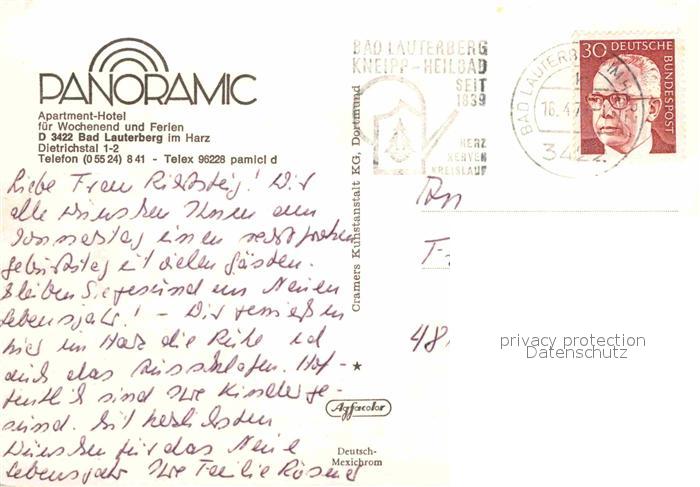 PANORAMIC
Apartment-Hotel
für Wochenend und Ferien
D 3422 Bad Lauterberg im Harz
Dietrichstal 1-2
Telefon (0 55 24) 8 41 - Telex 96228 pamici d
Liebe Frau ! Wir
alle wünschen Ihnen am
Donnerstag einen recht frohen
Geburtstag mit vielen Gästen.
Bleiben Sie gesund im Neuen
Lebensjahr! - Wir genießen
hier im Harz die Ruhe und
auch das Ausschlafen. Hof-
fentlich sind Ihre Kinder ge-
sund. Mit herzlichsten
Wünschen für das Neue
Lebensjahr Ihre Familie
Cramers Kunstanstalt KG, Dortmund
Agfacolor
Deutsch-
Mexichrom
BAD LAUTERBERG
KNEIPP-HEILBAD
SEIT
1839
HERZ
NERVEN
KREISLAUF
BAD LAUTERB
16.4.
3422
30 DEUTSCHE
BUNDESPOST
An
48
privacy protection
Datenschutz